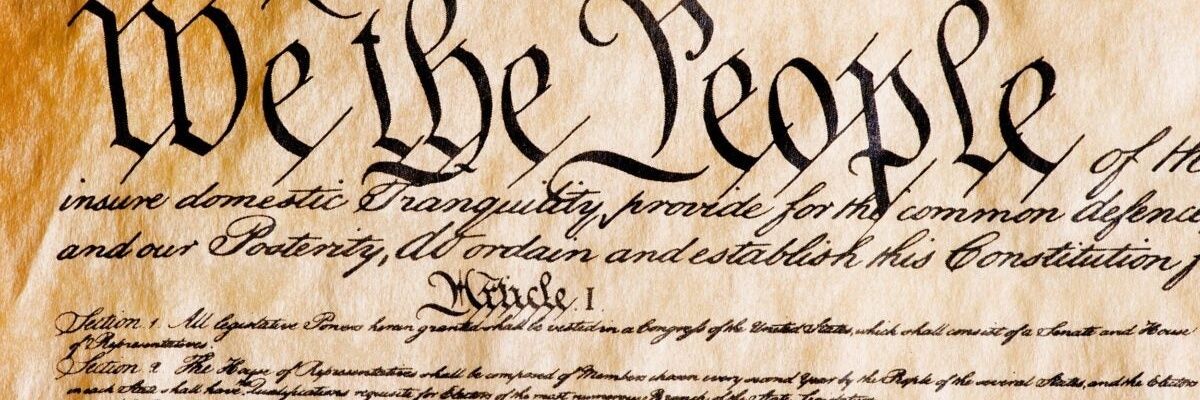 We the People of the
insure domestic Tranquility, provide for the common defence
and our Posterity, do ordain and establish this Constitution f
Article. I.
Section. 1. All legislative Powers herein granted shall be vested in a Congress of the United States, which shall consist of a Senate and House
of Representatives.
Section. 2. The House of Representatives shall be composed of Members chosen every second Year by the People of the several States, and the Electors
in each State shall have the Qualifications requisite for Electors of the most numerous Branch of the State Legislature.